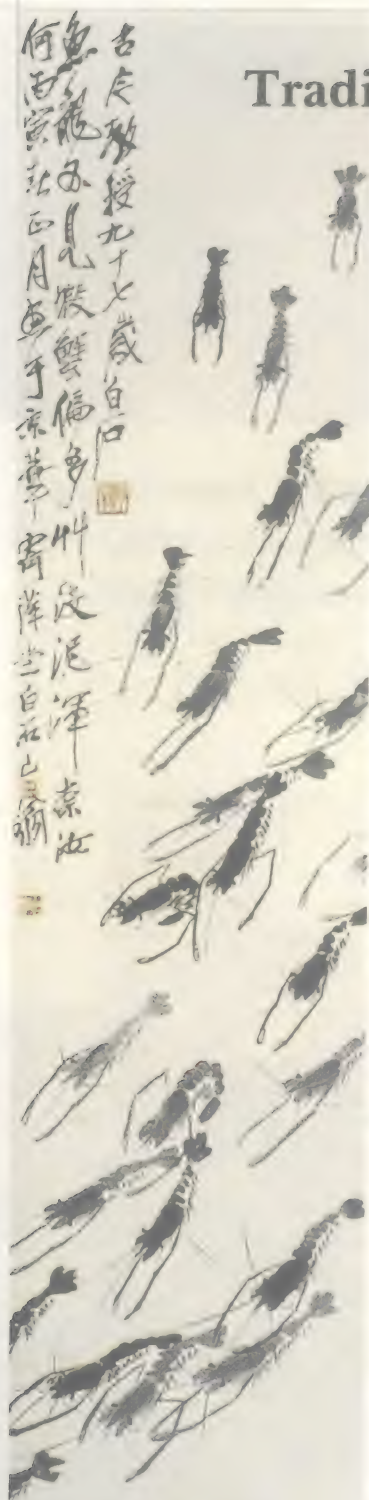 Tradi
古尺教授九十七歲白石
魚龍不見蝦蟹偏多草沒泥渾奈汝
何丙寅秋正月畫于京華寄萍堂白石山翁